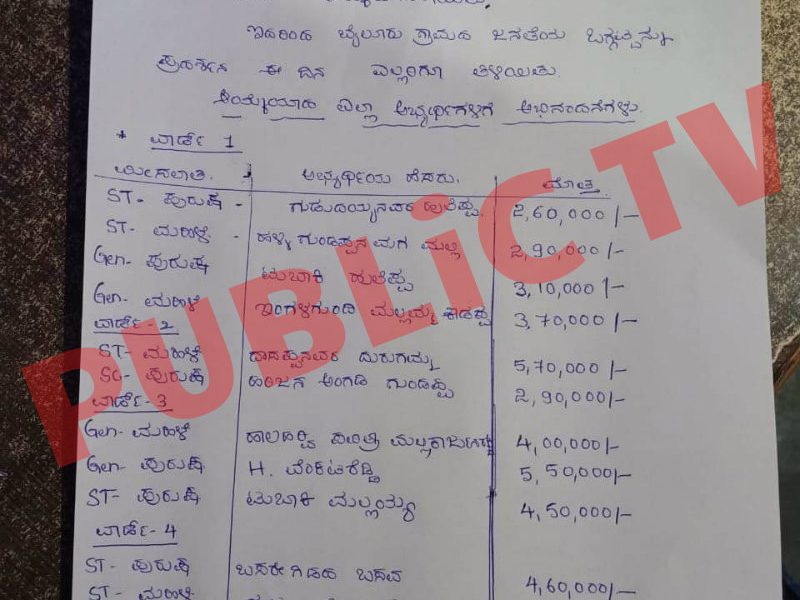 ಇದರಿಂದ ಬೈಲೂರು ಗ್ರಾಮದ ಜನತೆಯ ಒಗ್ಗಟ್ಟನ್ನು
ಪ್ರದರ್ಶನ ಈ ದಿನ ಎಲ್ಲರಿಗೂ ತಿಳಿಯಿತು.
ಆಯ್ಕೆಯಾದ ಎಲ್ಲಾ ಅಭ್ಯರ್ಥಿಗಳಿಗೆ ಅಭಿನಂದನೆಗಳು.
* ವಾರ್ಡ್ 1
ಮೀಸಲಾತಿ. ಅಭ್ಯರ್ಥಿಯ ಹೆಸರು. ಮೊತ್ತ
ST- ಪುರುಷ - ಹುಲೆಪ್ಪ. 2,60,000/-
ST- ಮಹಿಳೆ - ಹಳ್ಳಿ ಗುಂಡಪ್ಪನ ಮಗ ಮಲ್ಲಿ 2,90,000/-
Gen- ಪುರುಷ ಟುಬಾಕಿ ಹುಲೆಪ್ಪ 3,10,000/-
Gen- ಮಹಿಳೆ ಇಂಗಳಗುಂದಿ ಮಲ್ಲಮ್ಮ 3,70,000/-
ವಾರ್ಡ್-2
ST- ಮಹಿಳೆ ದಾಸಪ್ಪನವರ ದುರುಗಮ್ಮ 5,70,000/-
SC- ಪುರುಷ ಹರಿಜನ ಅಂಗಡಿ ಗುಂಡಪ್ಪ 2,90,000/-
ವಾರ್ಡ್-3
Gen- ಮಹಿಳೆ ಹಾಲಹರ್ವಿ 4,00,000/-
Gen- ಪುರುಷ H. ವೆಂಕಟರೆಡ್ಡಿ 5,50,000/-
ST- ಪುರುಷ ಟುಬಾಕಿ ಮಲ್ಲಯ್ಯ 4,50,000/-
ವಾರ್ಡ್-4
ST- ಪುರುಷ ಬಸರೀಗಿಡದ ಬಸವ 4,60,000/-
ST- ಮಹಿಳೆ
PUBLiC TV